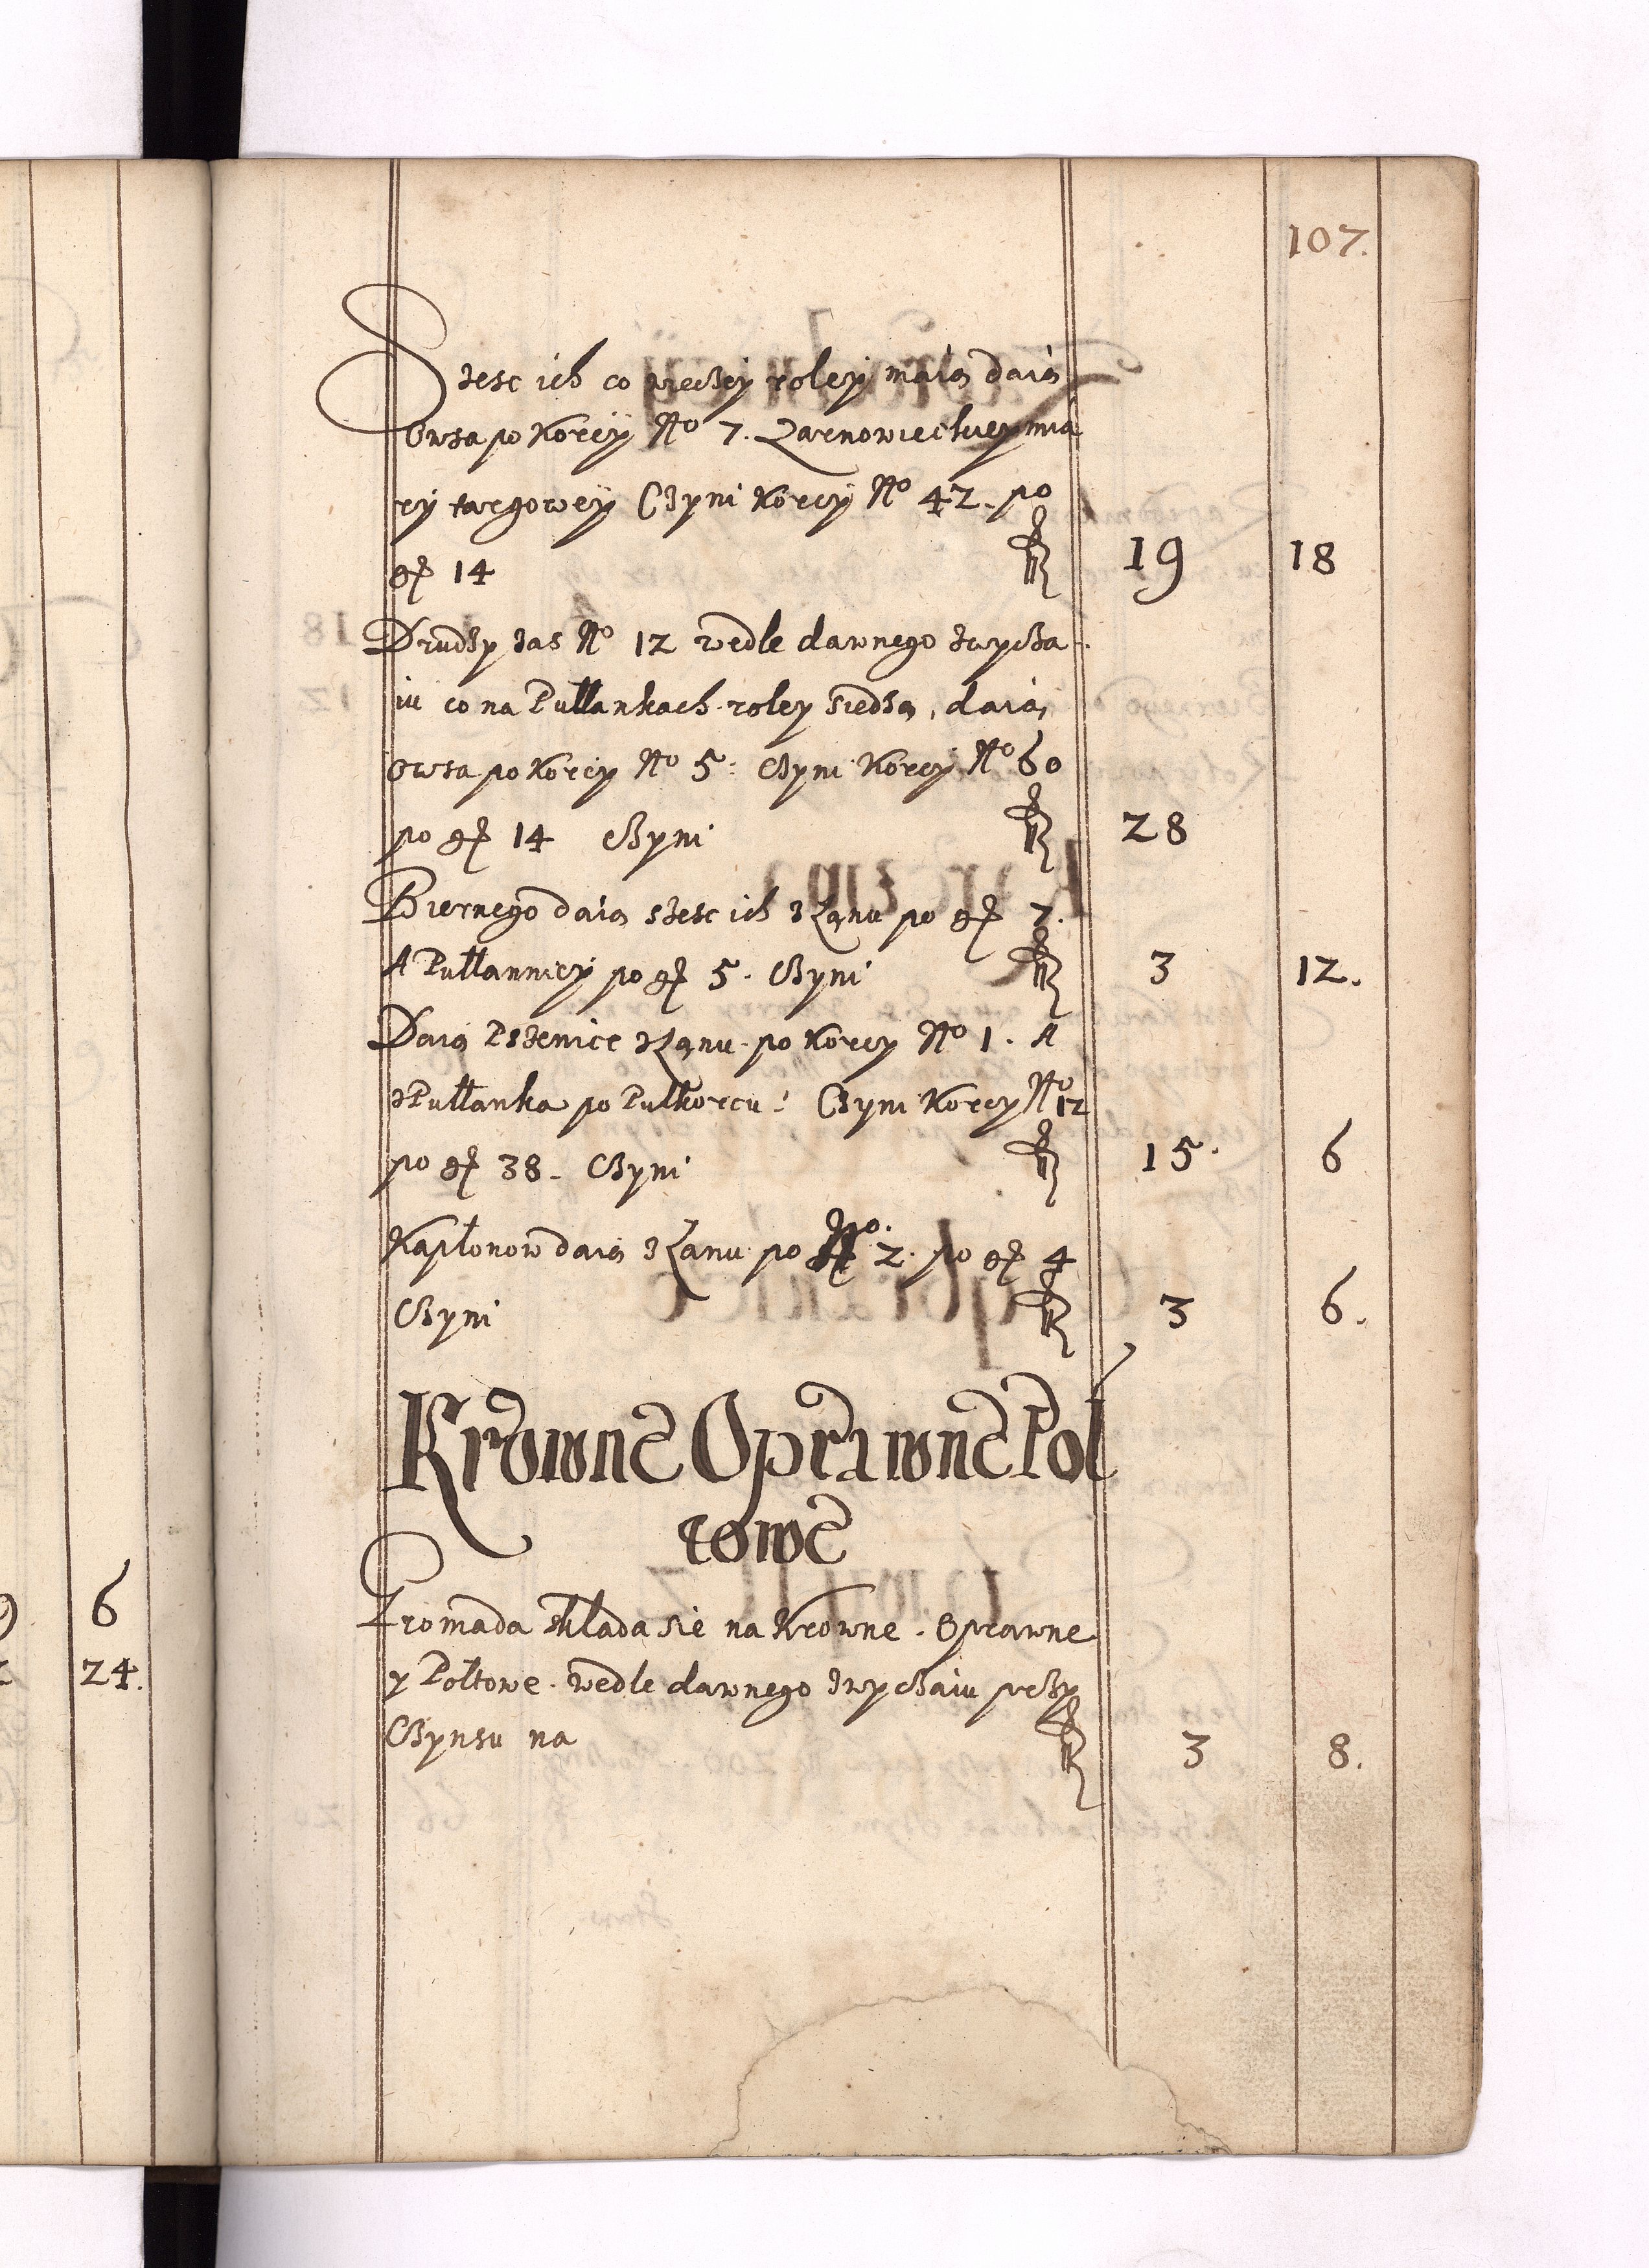 107.
Szesc ich co wieczey roley maią daią
Owsa po Korcy No 7. Zarnowieckiey mia
ry targowey Czyni Korcy No 42. po
gr 14 fl 19 18
Drudzy zas No 12 wedle dawnego zwycza
iu co na Pułłankach roley siedzą, daią
Owsa po Korcy No 5: Czyni Korcy No 60
po gr 14 Czyni fl 28
Biernego daią szesc ich z Łanu po gr 7.
A Pułłannicy po gr 5. Czyni fl 3 12.
Daią Pszenice z Łanu po Korcy No 1. A
z Pułłanka po Pułkorcu: Czyni Korcy No 12
po gr 38. Czyni fl 15. 6
Kapłonow daią z Łanu po No 2. po gr 4
Czyni fl 3 6.
Krowne Oprawne Poł
towe
Gromada składa sie na Krowne. Oprawne
y Połtowe. wedle dawnego zwyczaiu przy
Czynszu na fl 3 8.
6
24.